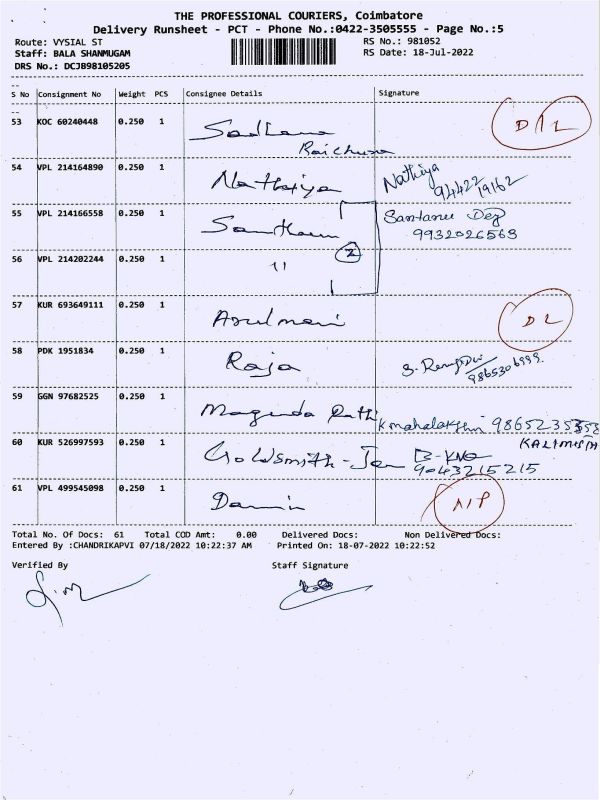 THE PROFESSIONAL COURIERS, Coimbatore
Delivery Runsheet - PCT - Phone No.:0422-3505555 - Page No.:5
Route: VYSIAL ST RS No.: 981052
Staff: BALA SHANMUGAM RS Date: 18-Jul-2022
DRS No.: DCJB98105205
S No Consignment No Weight PCS Consignee Details Signature
53 KOC 60240448 0.250 1 Sadhana D/L
Raichura
54 VPL 214164890 0.250 1 Nathiya Nathiya
94422 19162
55 VPL 214166558 0.250 1 Santanu Dey
9932026563
56 VPL 214202244 0.250 1 11 2
57 KUR 693649111 0.250 1 Arulmani DL
58 PDK 1951834 0.250 1 Raja
9865306999
59 GGN 97682525 0.250 1 Magenda Rathi K mahalakshmi
60 KUR 526997593 0.250 1 Goldsmith-Jen
9043215215
61 VPL 499545098 0.250 1 N/P
Total No. Of Docs: 61 Total COD Amt: 0.00 Delivered Docs: Non Delivered Docs:
Entered By :CHANDRIKAPVI 07/18/2022 10:22:37 AM Printed On: 18-07-2022 10:22:52
Verified By Staff Signature